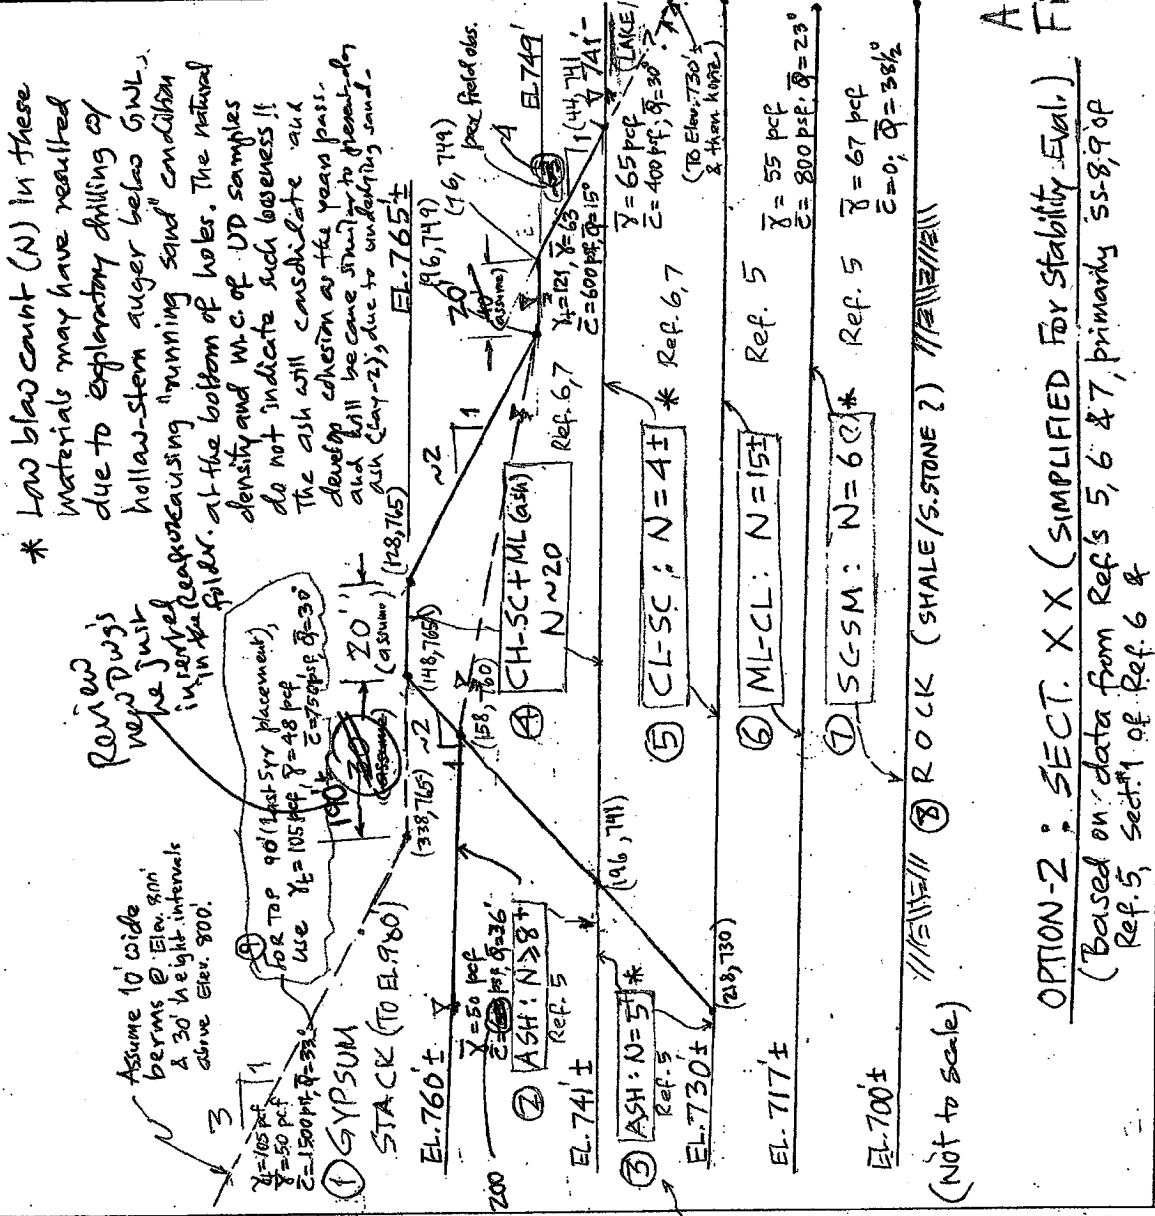 * Low blow count (N) in these
materials may have resulted
due to exploratory drilling w/
hollow-stem auger below GWL,
causing "running sand" condition
at the bottom of holes. The natural
density and W.C. of UD samples
do not indicate such looseness!!
The ash will consolidate and
develop cohesion as the years pass
and will become similar to present-day
ash (lay-2), due to underlying sand.
Review
new Dwg's
he just
inserted
in the Reaf
folder.
Assume 10' wide
berms @ Elev. 800'
& 30' height intervals
above Elev. 800'.
3
1
γt=105 pcf
γ̄=50 pcf
c̄=1500 psf, φ̄=33°
① GYPSUM
STACK (TO EL.980')
⑨
FOR TOP 90' (Last 5yr placement),
use γt=105 pcf, γ̄=48 pcf
c̄=750 psf, φ̄=30°
190'±
20'
(assume)
(338,765)
~2
1
(148,765)
(128,765)
~2
1
EL.765'±
(158,760)
20'
(assume)
(96,749)
(76,749)
per field obs.
4
1
EL.749'
(44,741)
741'-
(LAKE)
EL.760'±
γ̄=50 pcf
200
c̄= psf, φ̄=36°
② ASH: N≥8+
Ref. 5
④ CH-SC+ML (ash)
N~20
Ref. 6,7
γt=121, γ̄=63
c̄=600 psf, φ̄=15°
EL.741'±
(196,741)
③ ASH: N=5± *
Ref. 5
⑤ CL-SC: N=4± * Ref. 6,7
γ̄=65 pcf
c̄=400 psf; φ̄=30°
(To Elev. 730'±
& then horiz.)
EL.730'±
(218,730)
⑥ ML-CL: N=15± Ref. 5
γ̄=55 pcf
c̄=800 psf, φ̄=23°
EL.717'±
⑦ SC-SM: N=6(?) * Ref. 5
γ̄=67 pcf
c̄=0, φ̄=38½°
EL.700'±
⑧ ROCK (SHALE/S.STONE?)
(Not to scale)
OPTION-2: SECT. XX (SIMPLIFIED For Stability Eval.)
(Based on data from Ref's 5, 6 & 7, primarily SS-8,9 of
Ref. 5, Sect.#1 of Ref. 6 &
A
Fi